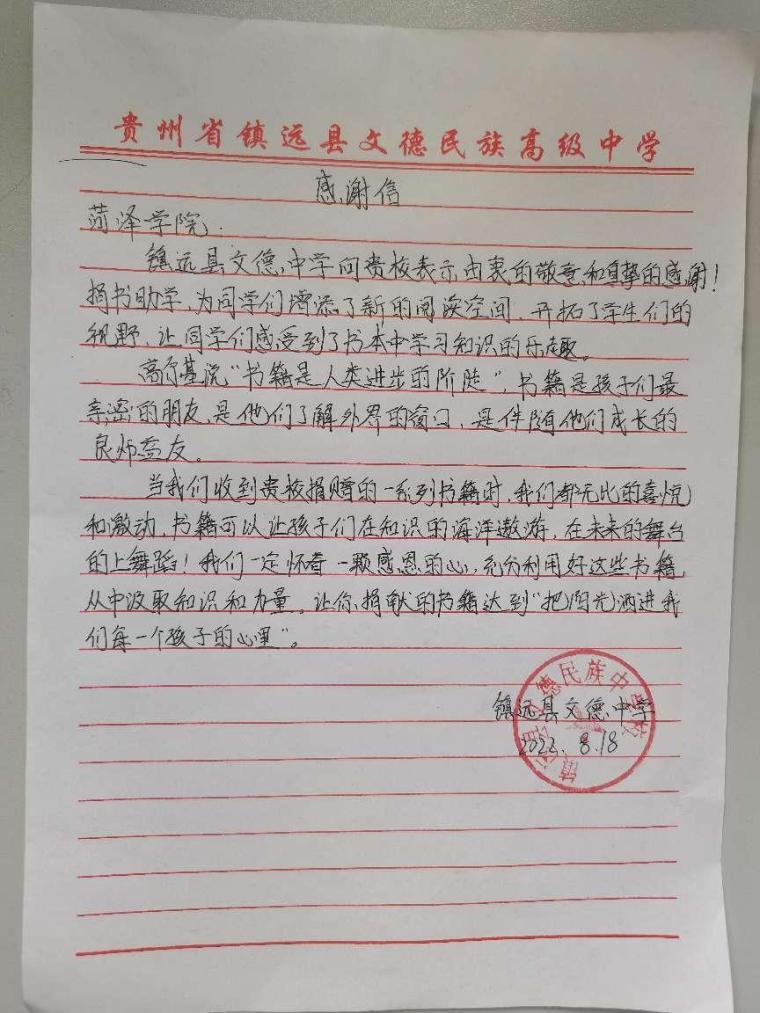 贵州省镇远县文德民族高级中学
感谢信
菏泽学院.
镇远县文德中学向贵校表示由衷的敬意和真挚的感谢!
捐书助学,为同学们增添了新的阅读空间,开拓了学生们的
视野,让同学们感受到了书本中学习知识的乐趣。
高尔基说“书籍是人类进步的阶陡”,书籍是孩子们最
亲密的朋友,是他们了解外界的窗口,是伴随他们成长的
良师益友。
当我们收到贵校捐赠的一系列书籍时,我们都无比的喜悦
和激动,书籍可以让孩子们在知识的海洋遨游,在未来的舞台
的上舞蹈!我们一定怀着一颗感恩的心,充分利用好这些书籍,
从中汲取知识和力量。让你捐献的书籍达到“把阳光洒进我
们每一个孩子的心里”。
镇远县文德中学
2022.8.18
德民族中学校